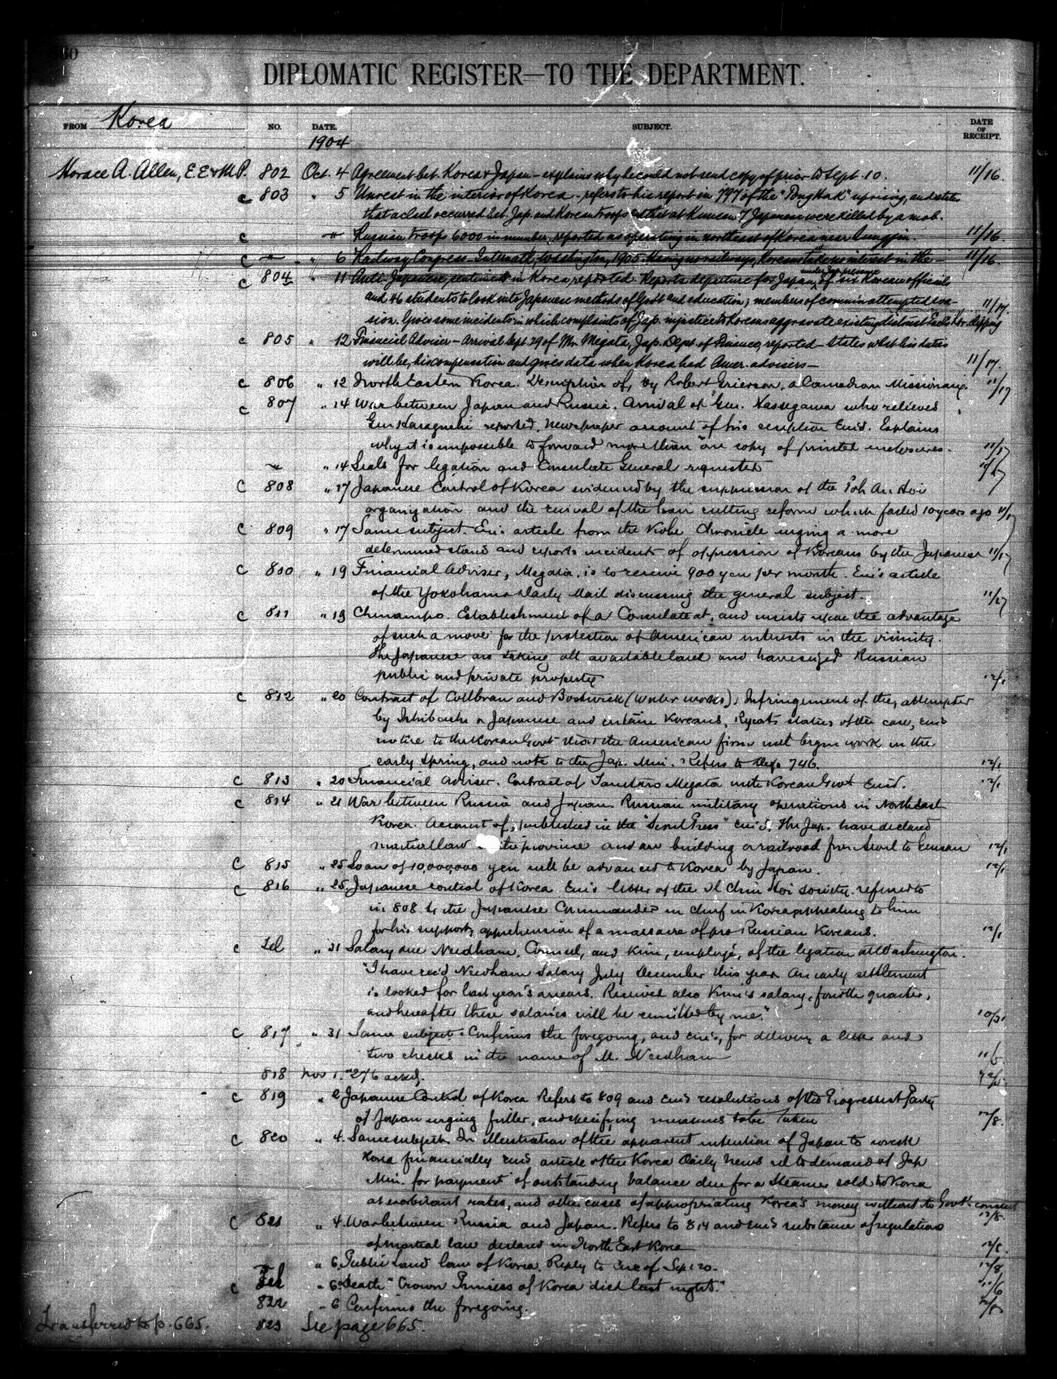 DIPLOMATIC REGISTER—TO THE DEPARTMENT.
FROM Korea NO. DATE. SUBJECT. DATE OF RECEIPT.
1904
Horace A. Allen, E.E.&M.P. 802 Oct. 4 Agreement bet. Korea & Japan – explains why he could not send copy of prior to Sept. 10. 11/16.
c 803 " 5 Unrest in the interior of Korea – refers to his report in 797 of the "Tong Hak" uprising, and states
that a clash occurred bet. Jap. and Korean troops & that at 7 Japanese were killed by a mob.
c " Russian troops 6000 in number, reported as operating in northeast of Korea near 11/16.
c " 6 Railway Congress – Internatl, Washington, 1905 – Having no railways, Korea takes no interest in the – 11/16.
c 804 " 11 Anti-Japanese sentiment in Korea, reported. Reports departure for Japan, under Jap. pressure of six Korean officials
and 46 students to look into Japanese methods of Govt and education; members of commission attempted
sion. Gives some incidents in which complaints of Jap. injustice to Koreans aggravate existing distrust 11/17.
c 805 " 12 Financial Adviser – Arrival Sept. 29 of Mr. Megata, Jap. Dept. of Finance, reported – States what his duties
will be, his compensation and gives data when Korea had Amer. advisers – 11/17.
c 806 " 12 North Eastern Korea. Description of, by Robert Grierson, a Canadian Missionary. 11/17
c 807 " 14 War between Japan and Russia. Arrival of Gen. Hasegawa who relieves
Gen. Haraguchi reported. Newspaper account of his reception Enc's. Explains
why it is impossible to forward more than one copy of printed inclosures. 11/17
" 14 Seals for legation and Consulate General requested
c 808 " 17 Japanese Control of Korea evidenced by the suppression of the Poh An Hoi
organization and the revival of the hair cutting reform which failed 10 years ago 11/17
c 809 " 17 Same subject. Enc's article from the Kobe Chronicle urging a more
determined stand and reports incident of oppression of Koreans by the Japanese 11/17
c 810 " 19 Financial Adviser, Megata, is to receive 900 yen per month. Enc's article
of the Yokohama Daily Mail discussing the general subject. 11/27
c 811 " 19 Chinampo. Establishment of a Consulate at, and insists upon the advantage
of such a move for the protection of American interests in the vicinity.
The Japanese are taking all available land and have seized Russian
public and private property 12/1
c 812 " 20 Contract of Collbran and Bostwick (Water works). Infringement of the, attempted
by a Japanese and certain Koreans, Reports status of the case, enc's
notice to the Korean Govt that the American firm will begin work in the
early Spring, and note to the Jap. Min. Refers to Desp. 746. 12/1
c 813 " 20 Financial Adviser. Contract of Tanetaro Megata with Korean Govt Enc'd. 12/1
c 814 " 21 War between Russia and Japan. Russian military operations in Northeast
Korea. Account of, published in the "Seoul Press" Enc'd. The Jap. have declared
martial law the province and are building a railroad from Seoul to Gensan 12/1
c 815 " 25 Loan of 10,000,000 yen will be advanced to Korea by Japan. 12/1
c 816 " 25 Japanese control of Korea Enc's letter of the Il Chin Hoi society referred to
in 808 to the Japanese Commander in chief in Korea appealing to him
for his support, apprehension of a massacre of pro Russian Koreans. 12/1
c Tel " 31 Salary due Needham, Counsel, and Kim, employé, of the legation at Washington.
"I have rec'd Needham Salary July December this year An early settlement
is looked for last year's arrears. Received also Kim's salary, fourth quarter,
and hereafter these salaries will be remitted by me." 10/31
c 817 " 31 Same subject. Confirms the foregoing, and enc's, for delivery a letter and
two checks in the name of M. Needham
818 Nov 1. 276 ackd.
c 819 " 2 Japanese Control of Korea Refers to 809 and enc's resolutions of the Progressist Party
of Japan urging fuller, and specifying measures to be taken 12/8.
c 820 " 4. Same subject. In illustration of the apparent intention of Japan to wreck
Korea financially enc's article of the Korea Daily News rel to demand of Jap
Min. for payment of outstanding balance due for a Steamer sold to Korea
at exorbitant rates, and other cases of appropriating Korea's money without the Govt's consent 12/8.
c 821 " 4 War between Russia and Japan. Refers to 814 and enc's substance of regulations
of martial law declared in North East Korea 12/8.
" 6. Public Land law of Korea. Reply to Circ of Sept 20. 12/8
c Tel " 6. Death "Crown Princess of Korea died last night."
822 " 6 Confirms the foregoing.
Transferred to p. 665. 823 See page 665.